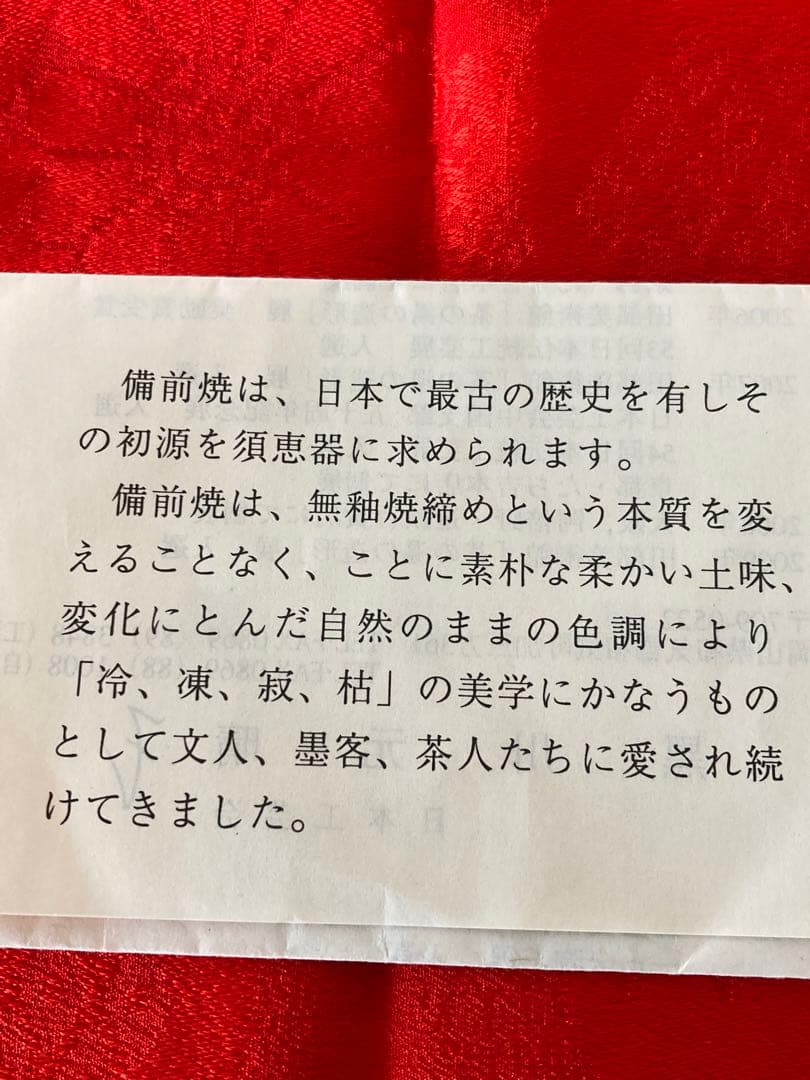 備前焼は、日本で最古の歴史を有しそ
の初源を須恵器に求められます。
備前焼は、無釉焼締めという本質を変
えることなく、ことに素朴な柔かい土味、
変化にとんだ自然のままの色調により
「冷、凍、寂、枯」の美学にかなうもの
として文人、墨客、茶人たちに愛され続
けてきました。